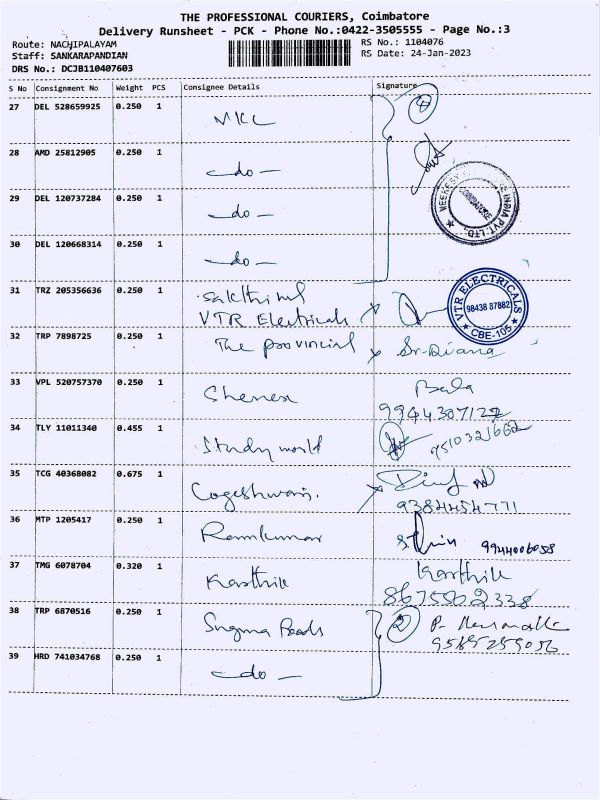 THE PROFESSIONAL COURIERS, Coimbatore
Delivery Runsheet - PCK - Phone No.:0422-3505555 - Page No.:3
Route: NACHIPALAYAM
Staff: SANKARAPANDIAN
DRS No.: DCJB110407603
RS No.: 1104076
RS Date: 24-Jan-2023
S No Consignment No Weight PCS Consignee Details Signature
27 DEL 528659925 0.250 1 MKL 4
28 AMD 25812905 0.250 1 - do -
29 DEL 120737284 0.250 1 - do -
INDIA PVT. LTD.
COIMBATORE
30 DEL 120668314 0.250 1 - do -
31 TRZ 205356636 0.250 1
VTR Electricals
VTR ELECTRICALS
98438 87882
CBE-105
32 TRP 7898725 0.250 1 The provincial Sr. Diana
33 VPL 520757370 0.250 1 Bala
9944307122
34 TLY 11011340 0.455 1 Study world 9510321662
35 TCG 40368082 0.675 1
9384454771
36 MTP 1205417 0.250 1 Ramkumar 9944006058
37 TMG 6078704 0.320 1 Karthik Karthik
8675802338
38 TRP 6870516 0.250 1 2
9585259056
39 HRD 741034768 0.250 1 - do -